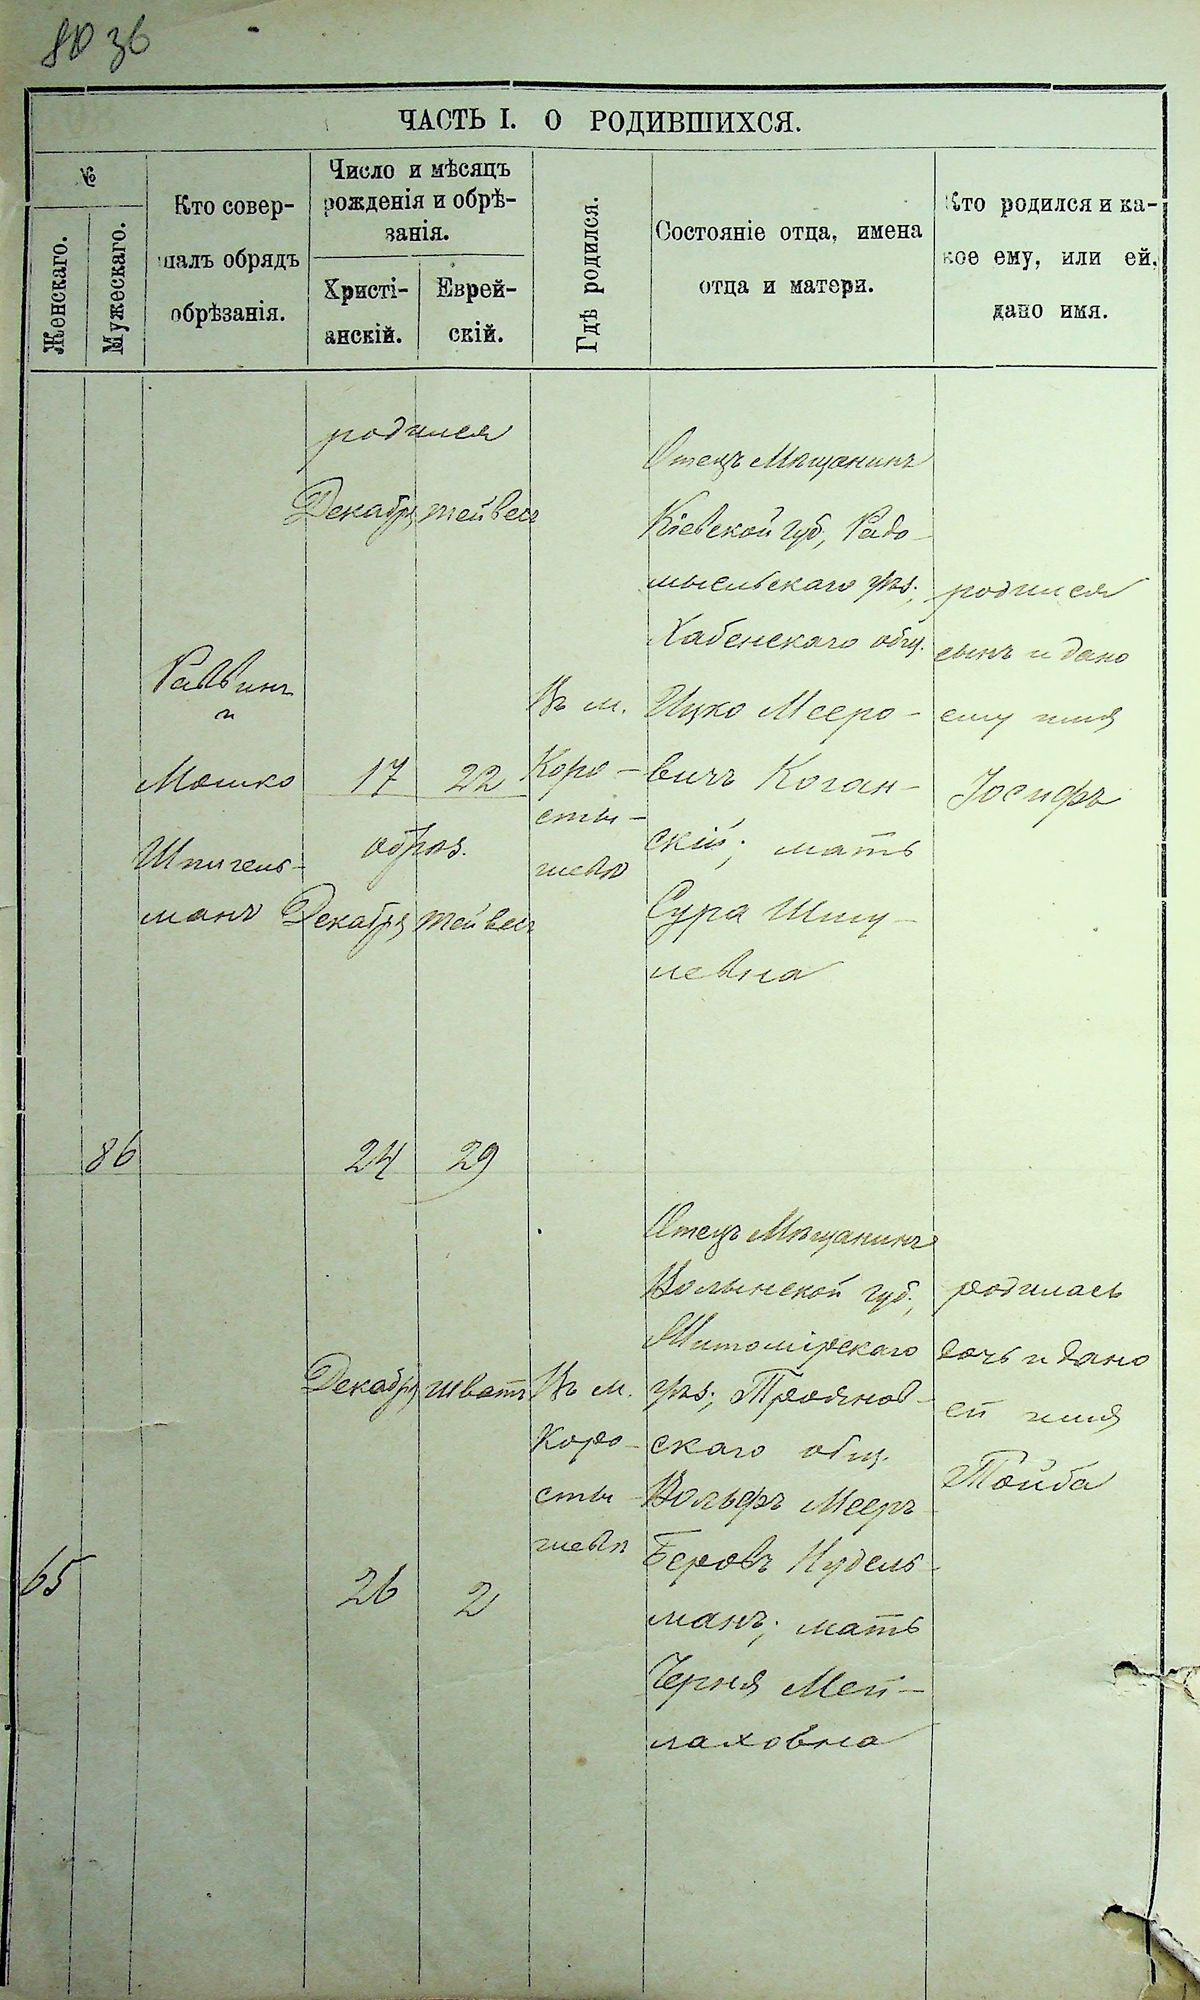 80 36
ЧАСТЬ I. О РОДИВШИХСЯ.
№
Женскаго.
Мужескаго.
Кто совер-
шалъ обрядъ
обрѣзанія.
Число и мѣсяцъ
рожденія и обрѣ-
занія.
Христі-
анскій.
Еврей-
скій.
Гдѣ родился.
Состояніе отца, имена
отца и матери.
Кто родился и ка-
кое ему, или ей,
дано имя.
86
Раввинъ
и
Мошко
Шпигель-
манъ
родился
Декабря Тейвесъ
17 22
обрѣз.
Декабря Тейвесъ
24 29
Въ м.
Коро-
сты-
шевѣ
Отецъ Мѣщанинъ
Кіевской губ., Радо-
мысльскаго уѣз.,
Хабенскаго общ.
Ицко Мееро-
вичъ Коган-
скій; мать
Сура Шму-
левна
родился
сынъ и дано
ему имя
Іосифъ
65
Декабря Шватъ
26 2
Въ м.
Коро-
сты-
шевѣ
Отецъ Мѣщанинъ
Волынской губ.,
Житомірскаго
уѣз., Трояновъ-
скаго общ.
Вольфъ Мееръ-
Беровъ Нудель-
манъ; мать
Черня Мей-
лаховна
родилась
дочь и дано
ей имя
Тойба